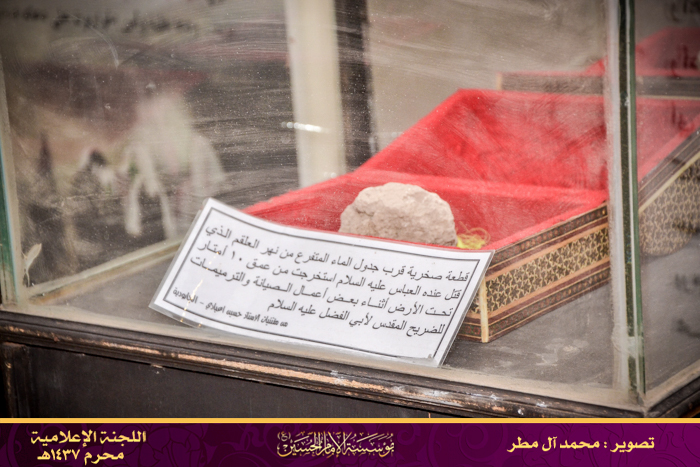 قطعة صخرية قرب جدول الماء المتفرع من نهر العلقم الذي
قتل عنده العباس عليه السلام استخرجت من عمق ١٠ أمتار
تحت الأرض أثناء بعض اعمال الصيانة والترميمات
للضريح المقدس لأبي الفضل عليه السلام
اللجنة الإعلامية
محرم ١٤٣٧هـ
مؤسسة الإمام الحسين
تصوير : محمد آل مطر